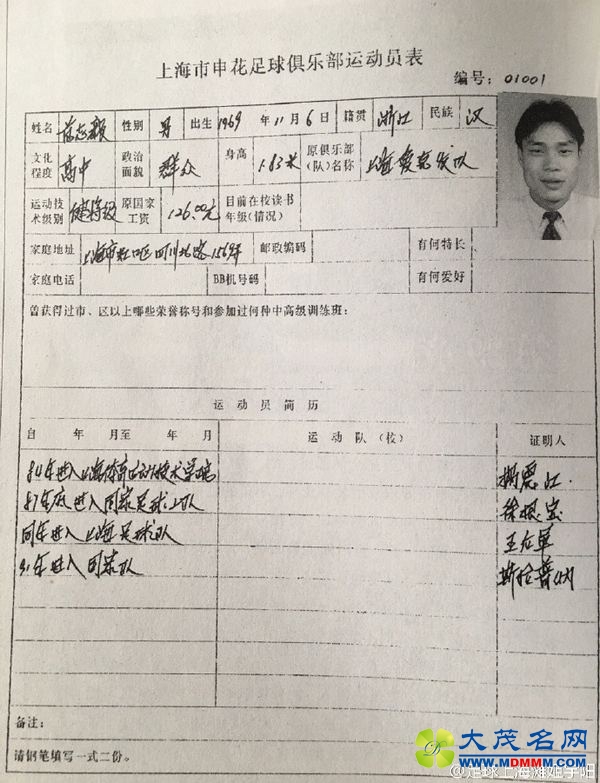 上海市申花足球俱乐部运动员表
编号: 01001
姓名 范志毅 性别 男 出生 1969 年 11 月 6 日 籍贯 浙江 民族 汉
文化程度 高中 政治面貌 群众 身高 1.83米 原俱乐部(队)名称 上海
运动技术级别 健将级 原国家工资 126.00元 目前在校读书年级(情况)
家庭地址 上海市虹口区四川北路1569弄 邮政编码 有何特长
家庭电话 BB机号码 有何爱好
曾获得过市、区以上哪些荣誉称号和参加过何种中高级训练班:
运动员简历
自 年 月至 年 月 运动队(校) 证明人
84年进入上海体育运动技术学院
87年底进入国家足球二队 徐根宝
同年进入上海足球队 王后军
91年进入国家队 斯拉普纳
备注:
请钢笔填写一式二份。
大茂名网
WWW.MDMMM.COM